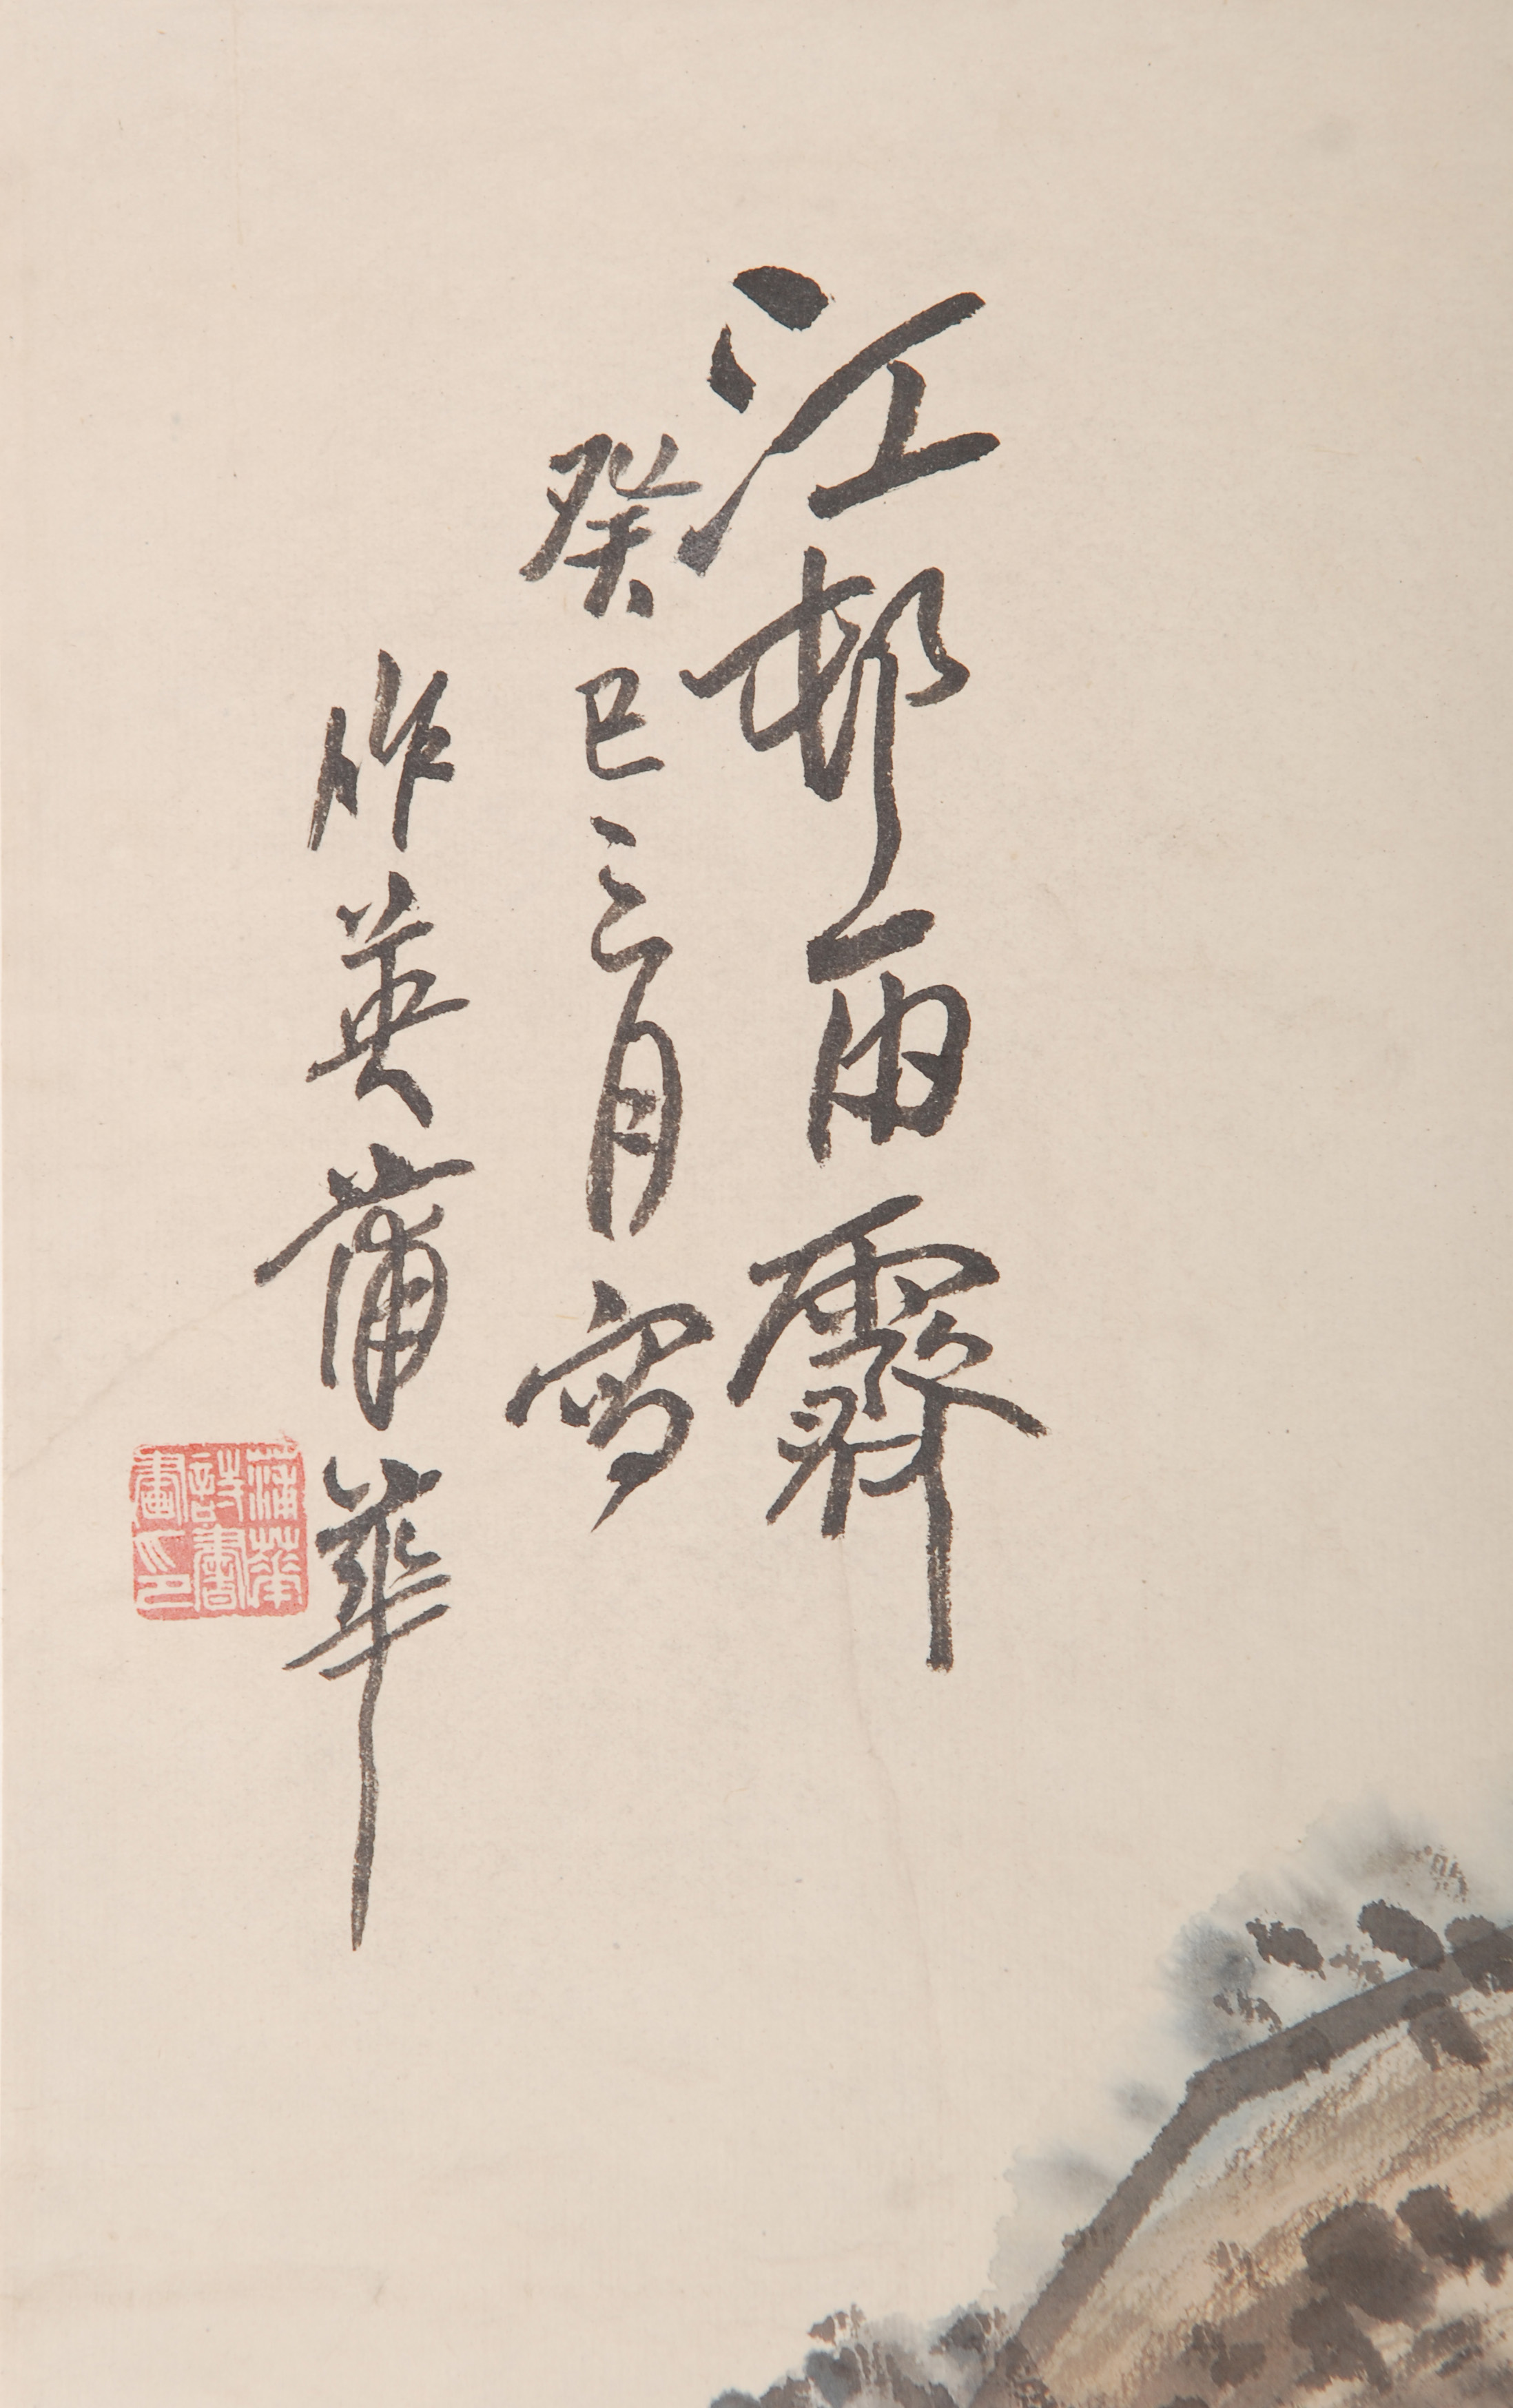 江邨雨霽
癸巳三月寫
作英蒲華
蒲華
詩書
畫印